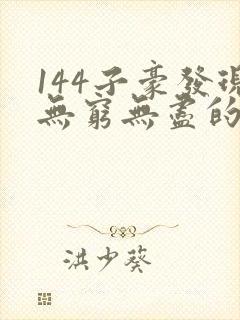 144子豪發現
無窮無盡的
洪少葵